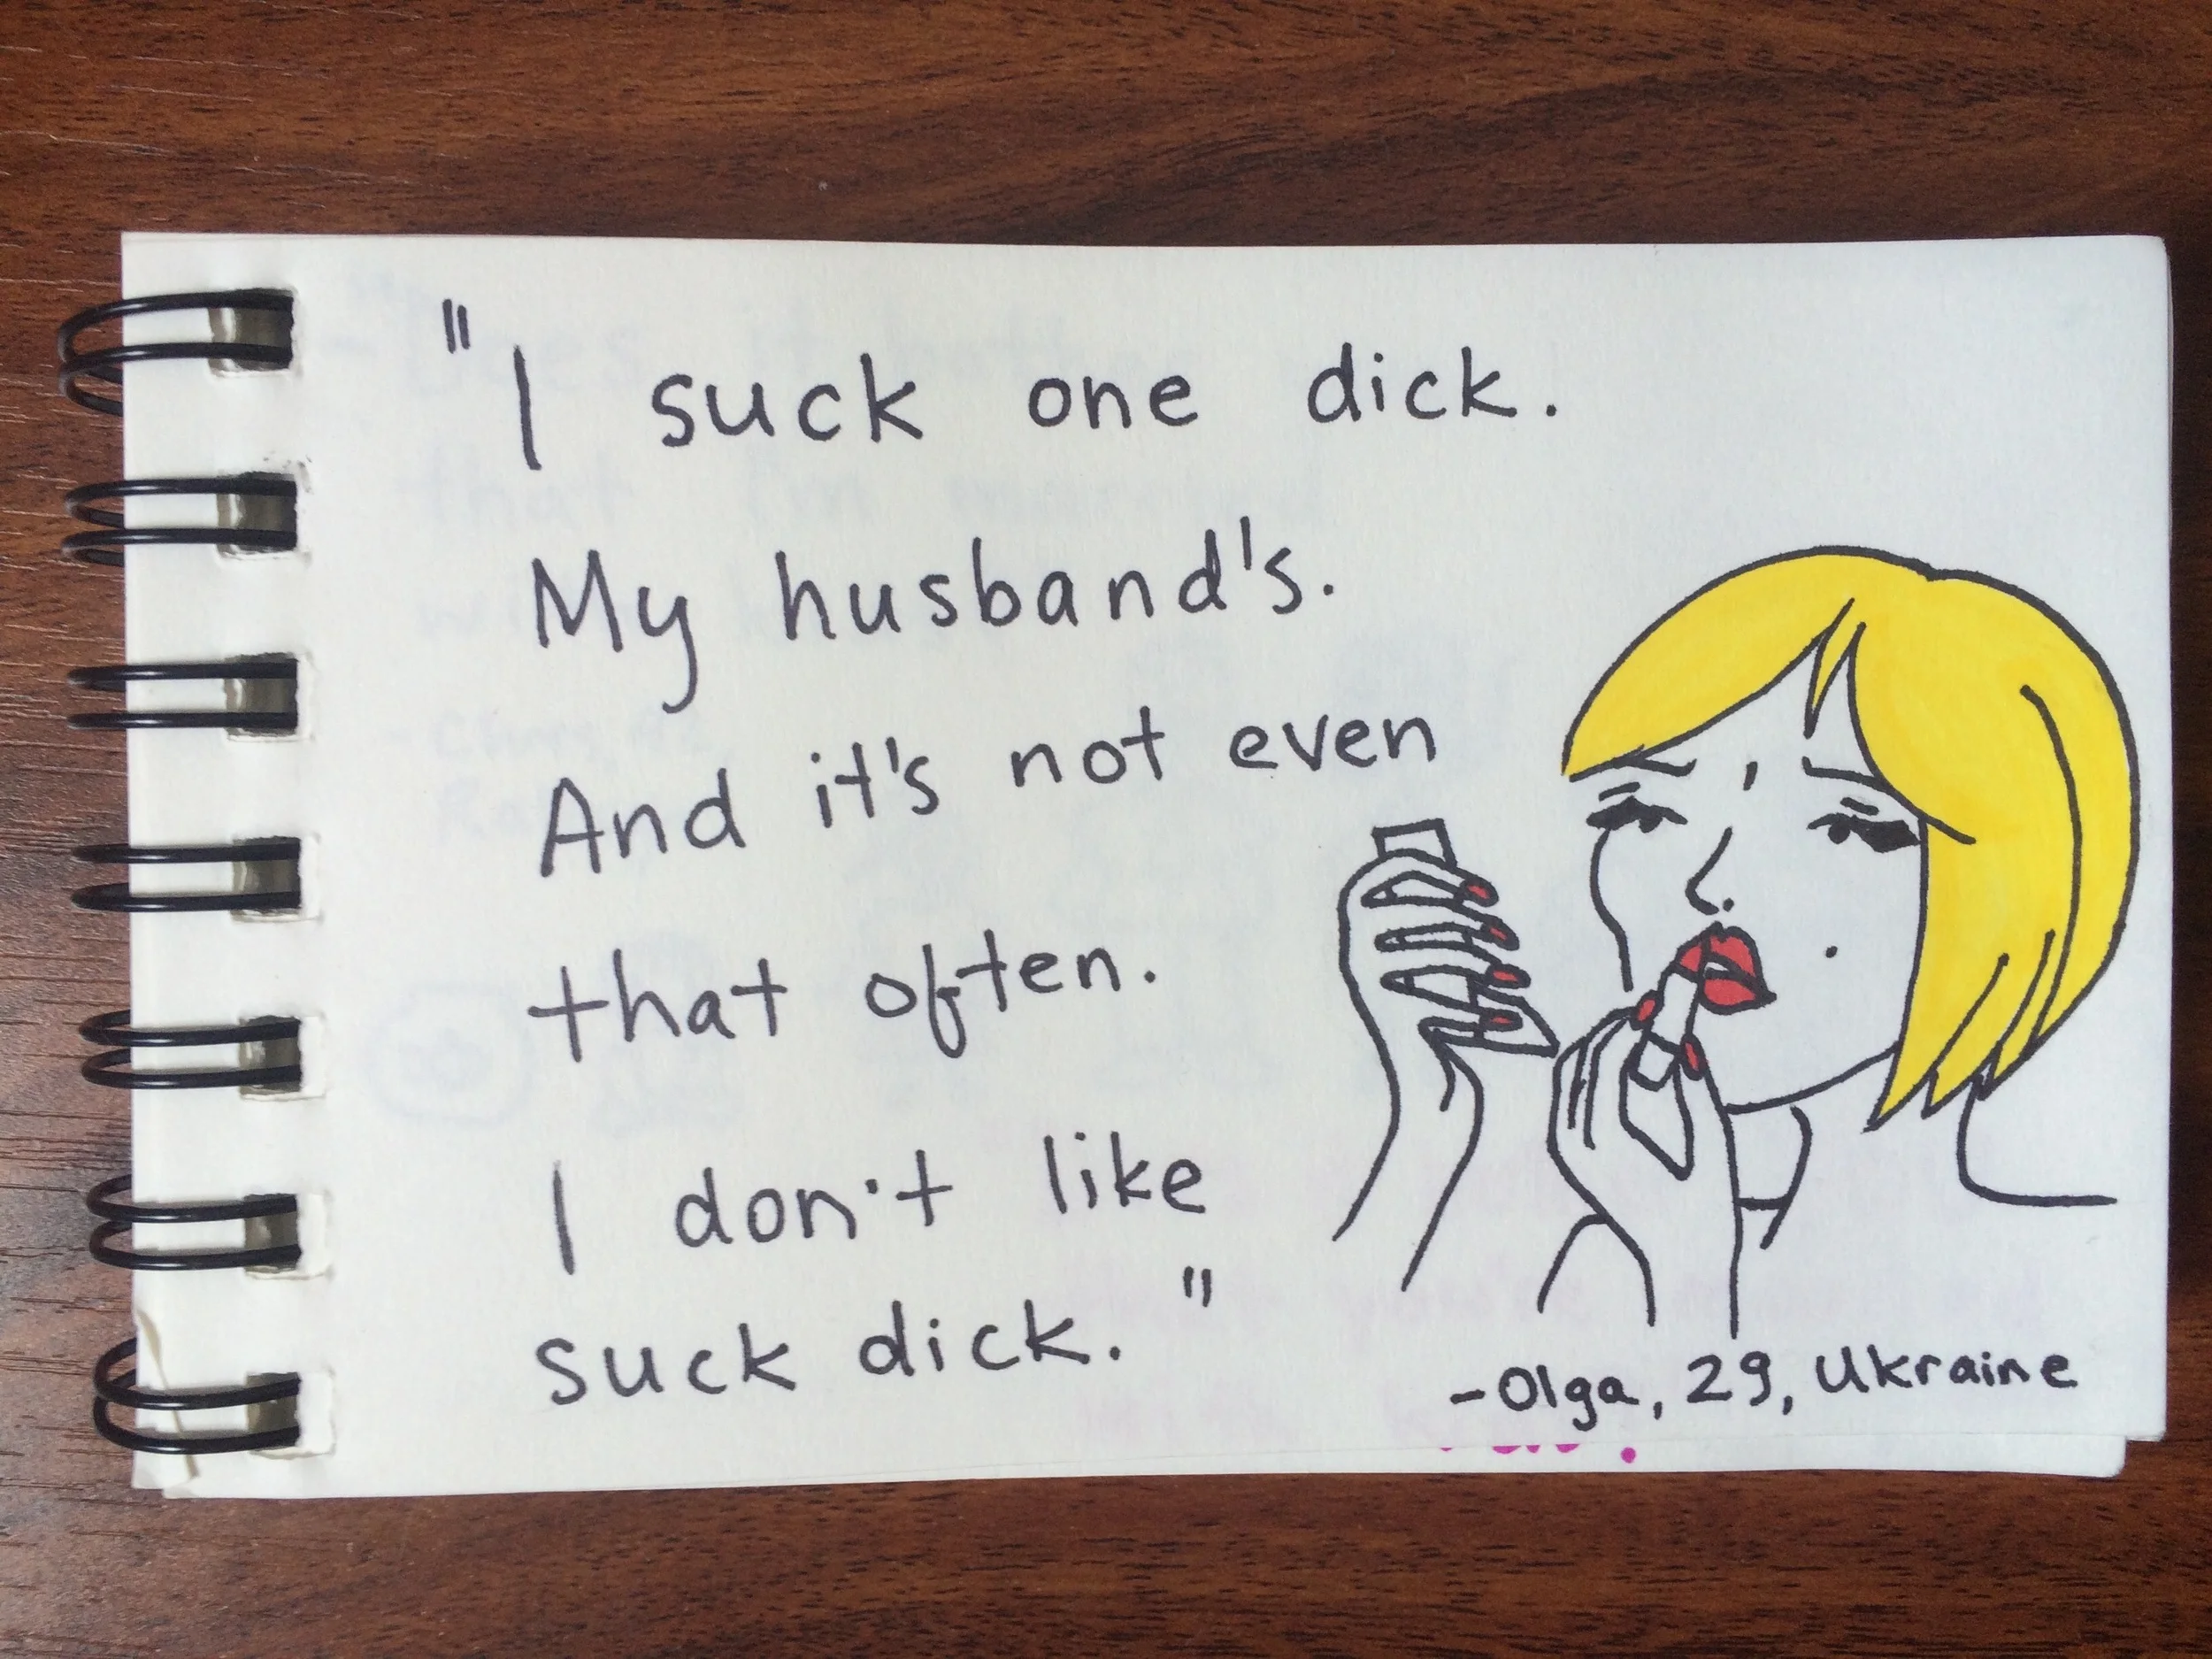 "I suck one dick.
My husband's.
And it's not even
that often.
I don't like
suck dick."
-Olga, 29, Ukraine